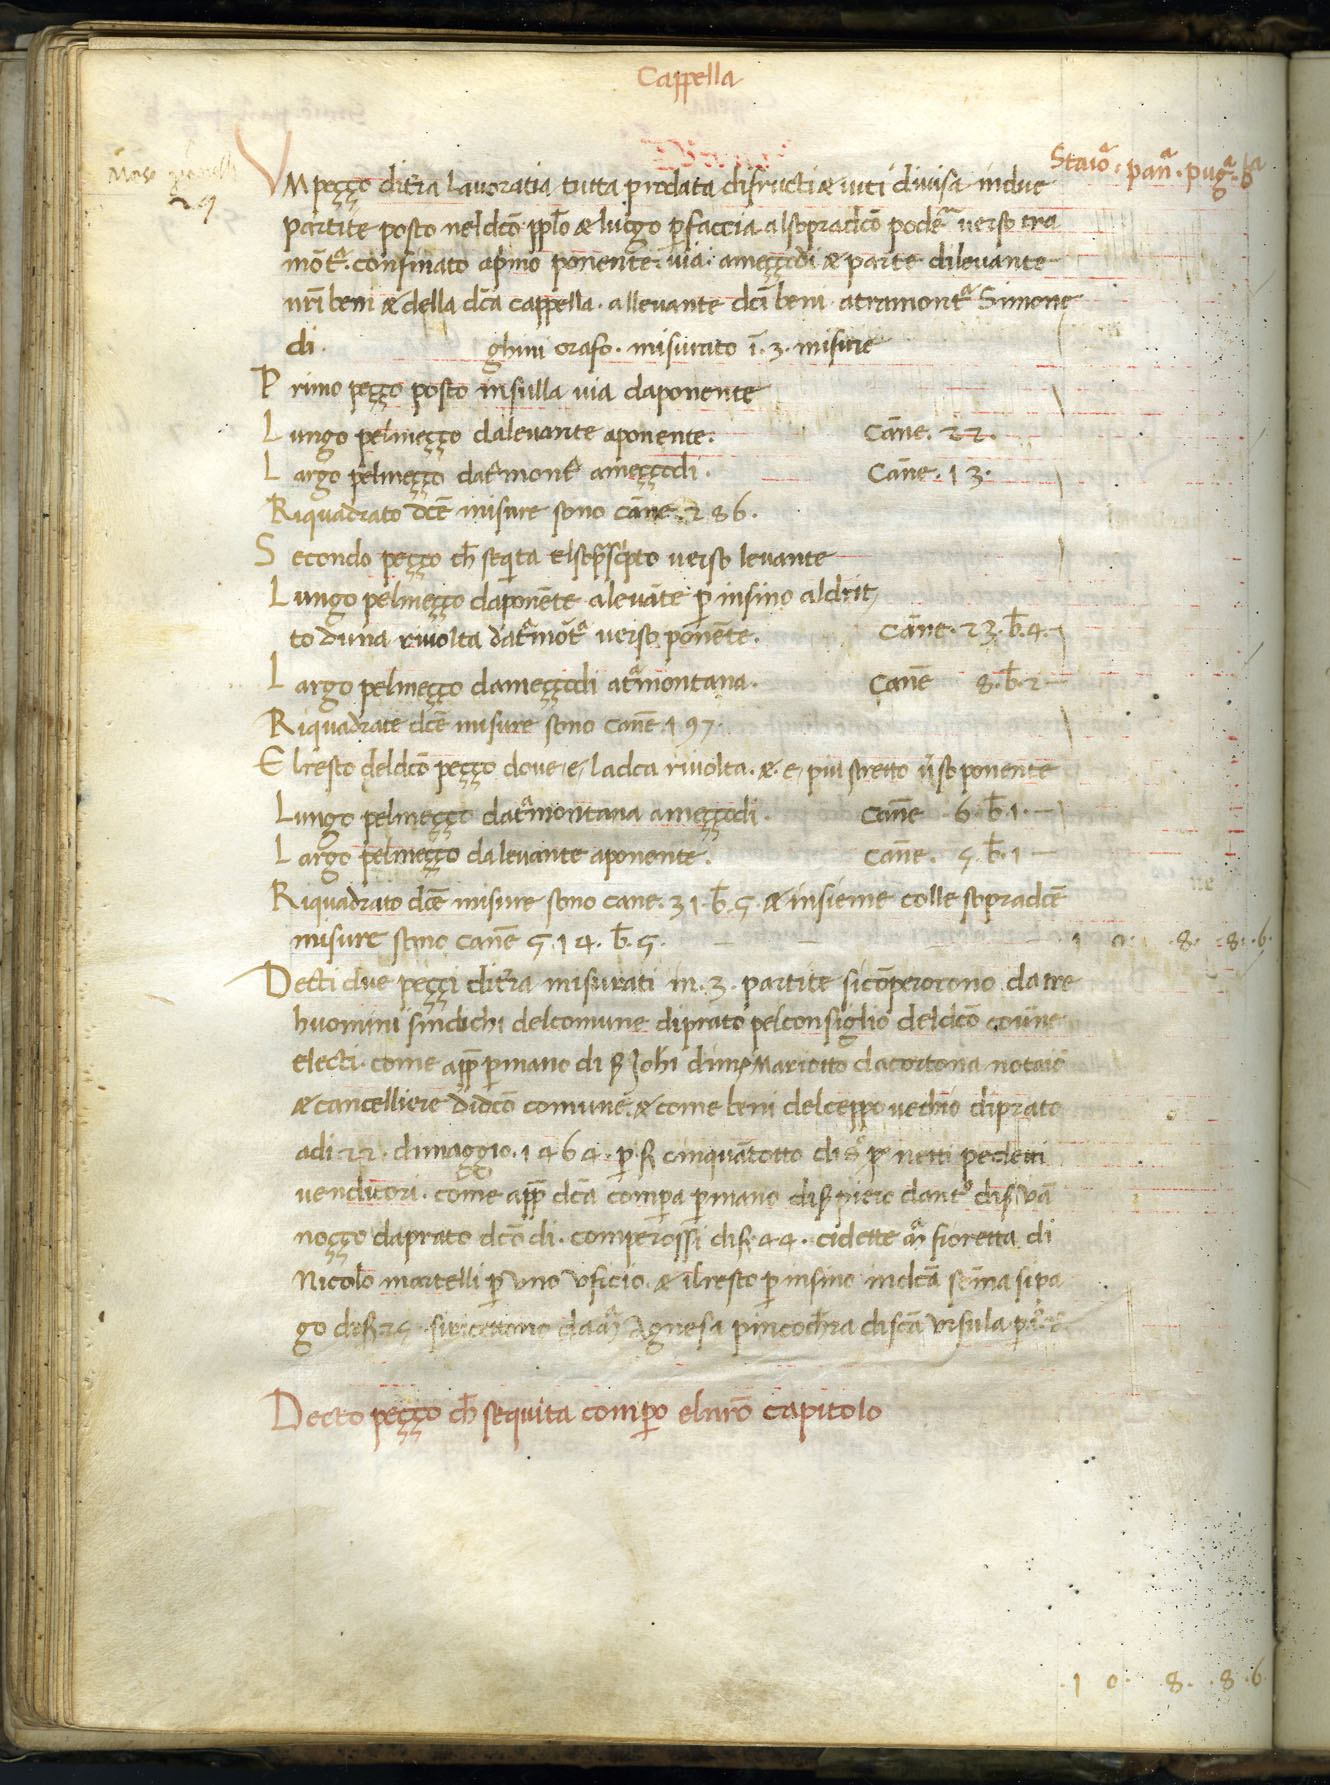 Cappella
Staiōᵃ · panᵃ · pugᵃ · bᵃ
29
VM pezzo dit̄ra lavoratia tutta prodata difructi & viti divisa indue
partite posto neldc̄o pp̄lo & luogo p̄faccia alsopradc̄o podeᵃ verso tra
mōtᵃ. confinato ap̄mo ponente. via. amezzodi & parte dilevante
nr̄i beni & della dc̄a cappella. allevante dc̄i beni. atramontᵃ Simone
di ghini orafo. misurato ī. 3. misure
Primo pezzo posto insulla via daponente
Lungo pelmezzo dalevante aponente. Cāne. 22.
Largo pelmezzo datᵃmontᵃ amezzodi. Cāne. 13.
Riquadrato dc̄e misure sono cāne 286.
Secondo pezzo ch̄ seqⁱta elsop̄scⁱpto verso levante
Lungo pelmezzo daponēte alevāte p̄ insino aldrit
to duna rivolta datᵃmōtᵃ verso ponēte. Cāne. 23. b̄. 4.
Largo pelmezzo damezzodi atᵃmontana. Canē 8. b̄. 2
Riquadrate dc̄e misure sono canē 197.
Elresto deldc̄o pezzo dove e ladc̄a rivolta. & e piu stretto v̄so ponente
Lungo pelmezzo datᵃmontana amezzodi. Canē 6. b̄. 1.
Largo pelmezzo dalevante aponente. Cane. 5. b̄. 1
Riquadrato dc̄e misure sono cane. 31. b̄. 5. & insieme colle sopradc̄e
misure sono canē 514. b̄. 5. 1 0. 8. 8. 6.
Decti due pezzi dit̄ra misurati in. 3. partite sicōperorono da tre
huomini sindichi delcomune diprato pelconsiglio deldc̄o comune
electi. come app̄ p̄mano di § Joh̄i dimꝭ Mariotto dacortona notaio
& cancelliere didc̄o comune. & come beni delceppo vechio diprato
adi 22. dimaggio. 1464. p̄. f̄ cinquātotto di netti pedetti
venditori. come app̄ dc̄a compa p̄mano di § piero dantᵒ di
nozzo daprato dc̄o di. comperossi dif̄. 44. cidette mᵃ fioretta di
Nicolo martelli p̄ uno uficio. & ilresto p̄ insino indc̄a sōma sipa
go def̄ 25. siricettono da mᵃ Agnesa pinzoch̄ra discā Ursula
Decto pezzo ch̄ sequita compo elnrō capitolo
. 1 0. 8. . 8. 6